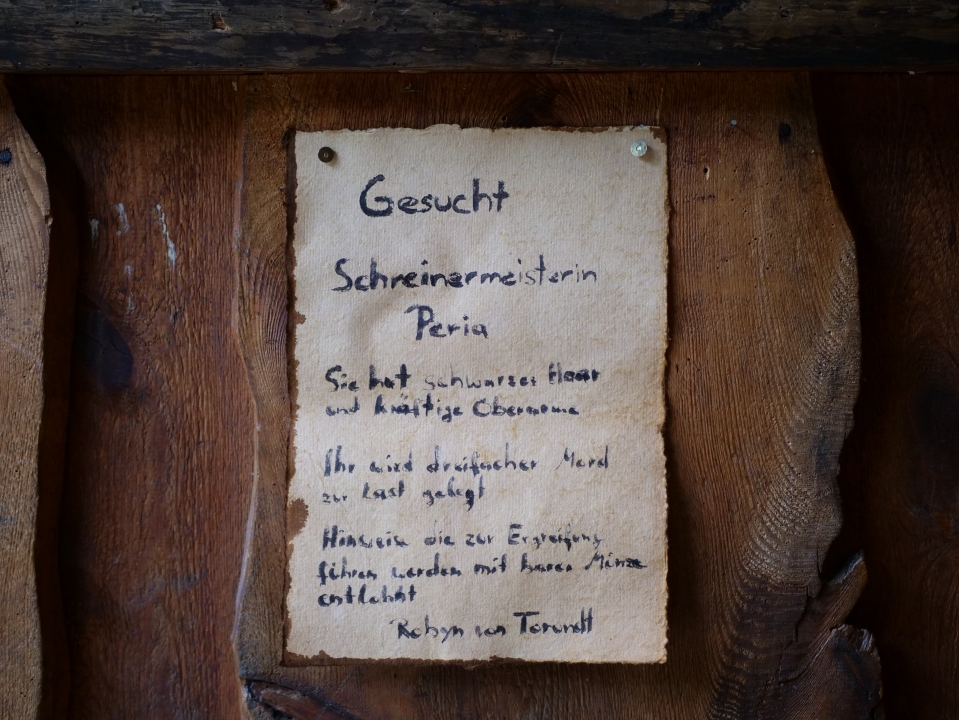 Gesucht
Schreinermeisterin
Peria
Sie hat schwarzes Haar
und kräftige Oberarme
Ihr wird dreifacher Mord
zur Last gelegt
Hinweise die zur Ergreifung
führen werden mit barer Münze
entlohnt
Robyn von